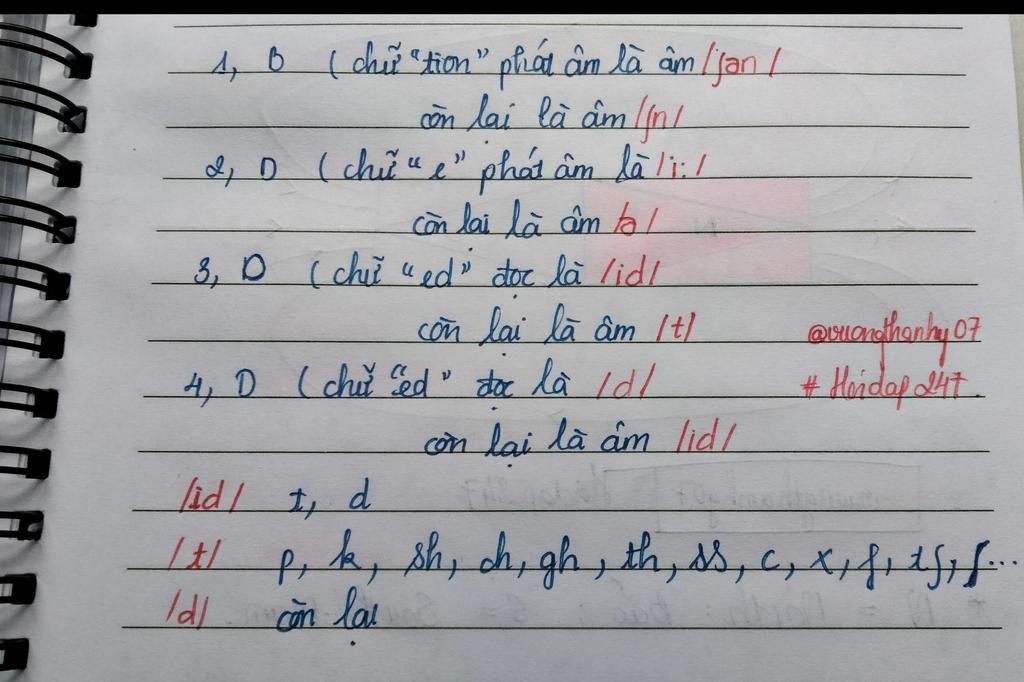 1, B ( chữ "tion" phát âm là âm /ʃən /
còn lại là âm /ʃn/
2, D ( chữ "e" phát âm là /i:/
còn lại là âm /ə/
3, D ( chữ "ed" đọc là /id/
còn lại là âm /t/ @vuongthanhy07
4, D ( chữ "ed" đọc là /d/ # Hoidap247.
còn lại là âm /id/
/id/ t, d
/t/ p, k, sh, ch, gh, th, ss, c, x, f, tʃ, ʃ...
/d/ còn lại